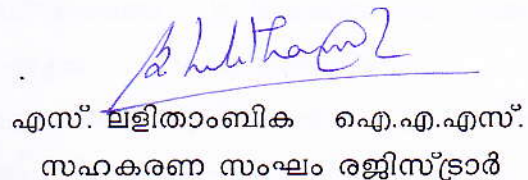 എസ്. ലളിതാംബിക ഐ.എ.എസ്.
സഹകരണ സംഘം രജിസ്ട്രാർ